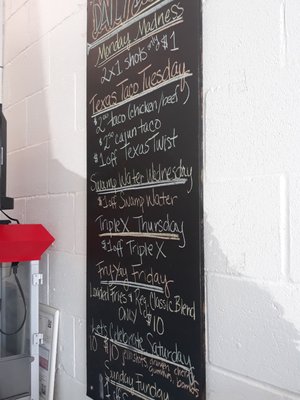 Monday Madness
2x1 shots only $1
Texas Taco Tuesday
$2.00 taco (chicken/beef)
$2.50 cajun taco
$1 off Texas Twist
Swamp Water Wednesday
$1 off Swamp Water
Triple X Thursday
$1 off Triple X
Fry-Yay Friday
Loaded Fries & Reg. Classic Blend
ONLY $10
Lets Celebrate Saturday
10 $10
Sunday Funday
$1 off